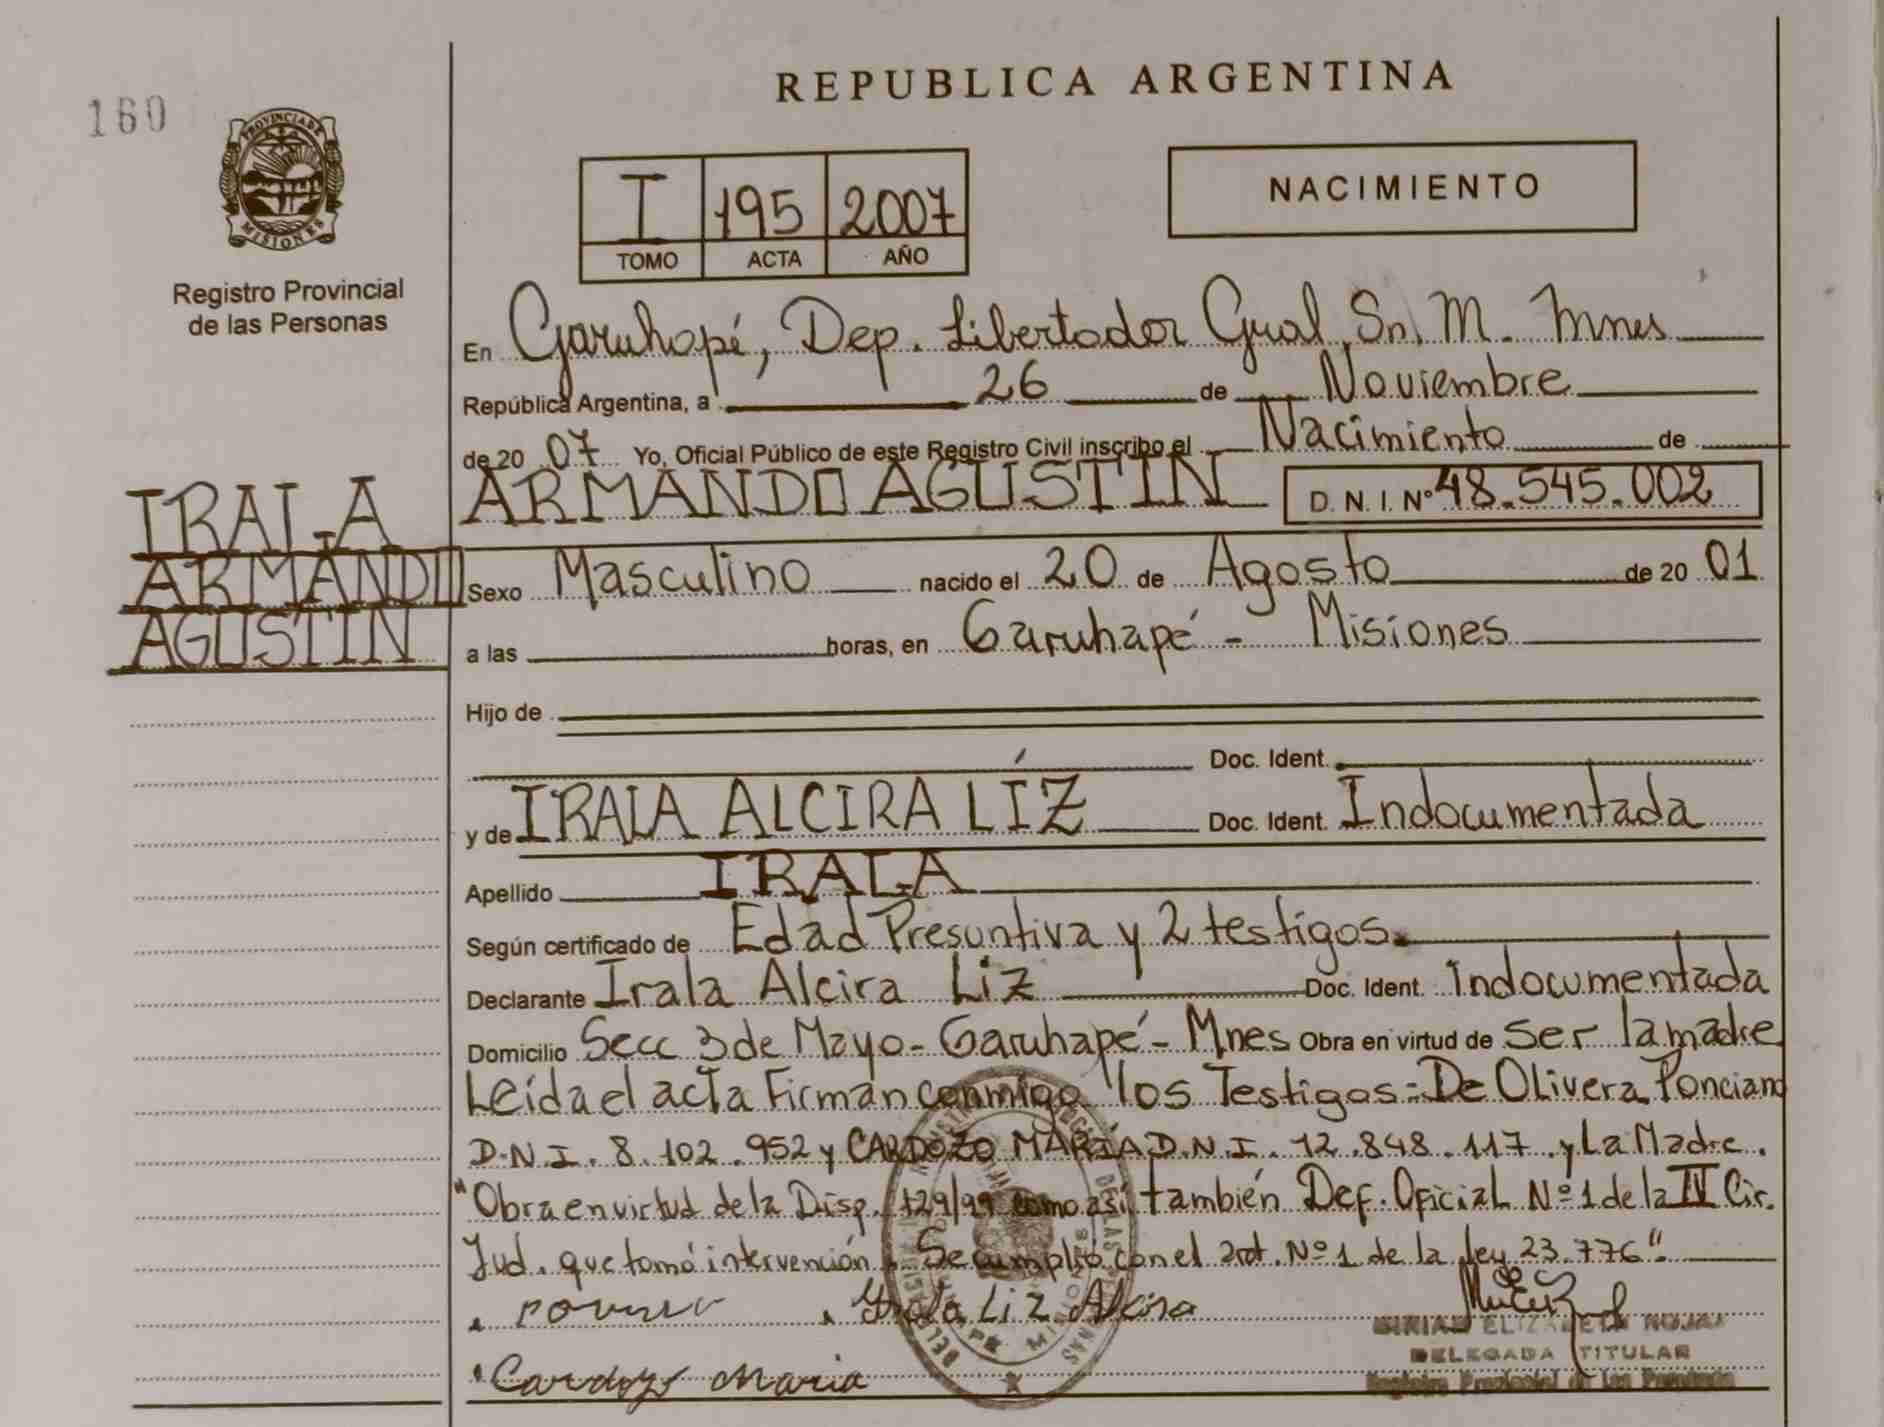 160
REPUBLICA ARGENTINA
PROVINCIA DE
MISIONES
Registro Provincial
de las Personas
I 195 2007
TOMO ACTA AÑO
NACIMIENTO
En Garuhapé, Dep. Libertador Gral. Sn. M. Mnes
República Argentina, a 26 de Noviembre
de 20 07 Yo, Oficial Público de este Registro Civil inscribo el Nacimiento de
IRALA
ARMANDO
AGUSTIN
ARMANDO AGUSTIN D. N. I. Nº 48.545.002
Sexo Masculino nacido el 20 de Agosto de 20 01
a las horas, en Garuhapé - Misiones
Hijo de
Doc. Ident.
y de IRALA ALCIRA LÍZ Doc. Ident. Indocumentada
Apellido IRALA
Según certificado de Edad Presuntiva y 2 testigos.
Declarante Irala Alcira Liz Doc. Ident. Indocumentada
Domicilio Secc 3 de Mayo - Garuhapé - Mnes Obra en virtud de Ser la madre
Leída el acta Firman conmigo los Testigos: De Olivera Ponciano
D.N.I. 8.102.952 y CARDOZO MARÍA D.N.I. 12.848.117 y La Madre.
"Obra en virtud de la Disp. 129/99 como así también Def. Oficial Nº 1 de la IV Cir.
Jud. que tomó intervención. Se cumplió con el art. Nº 1 de la ley 23.776".
Irala Liz Alcira
ELIZABETH ROJAS
DELEGADA TITULAR
Registro Provincial de las Personas
Cardozo Maria